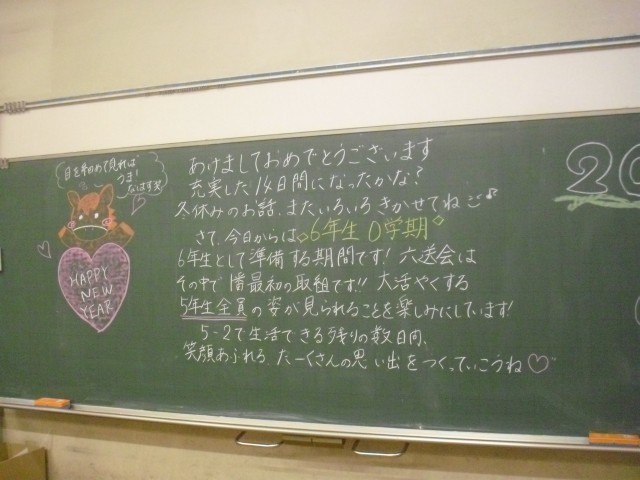 目を細めて見れば
うま!
なはず笑
HAPPY
NEW
YEAR
あけましておめでとうございます
充実した14日間になったかな?
冬休みのお話、またいろいろきかせてね♪
さて、今日からは◇6年生0学期◇
6年生として準備する期間です! 六送会は
その中で1番最初の取組です!! 大活やくする
5年生全員の姿が見られることを楽しみにしています!
5-2で生活できる残りの数日間、
笑顔あふれる、たーくさんの思い出をつくっていこうね♡
20